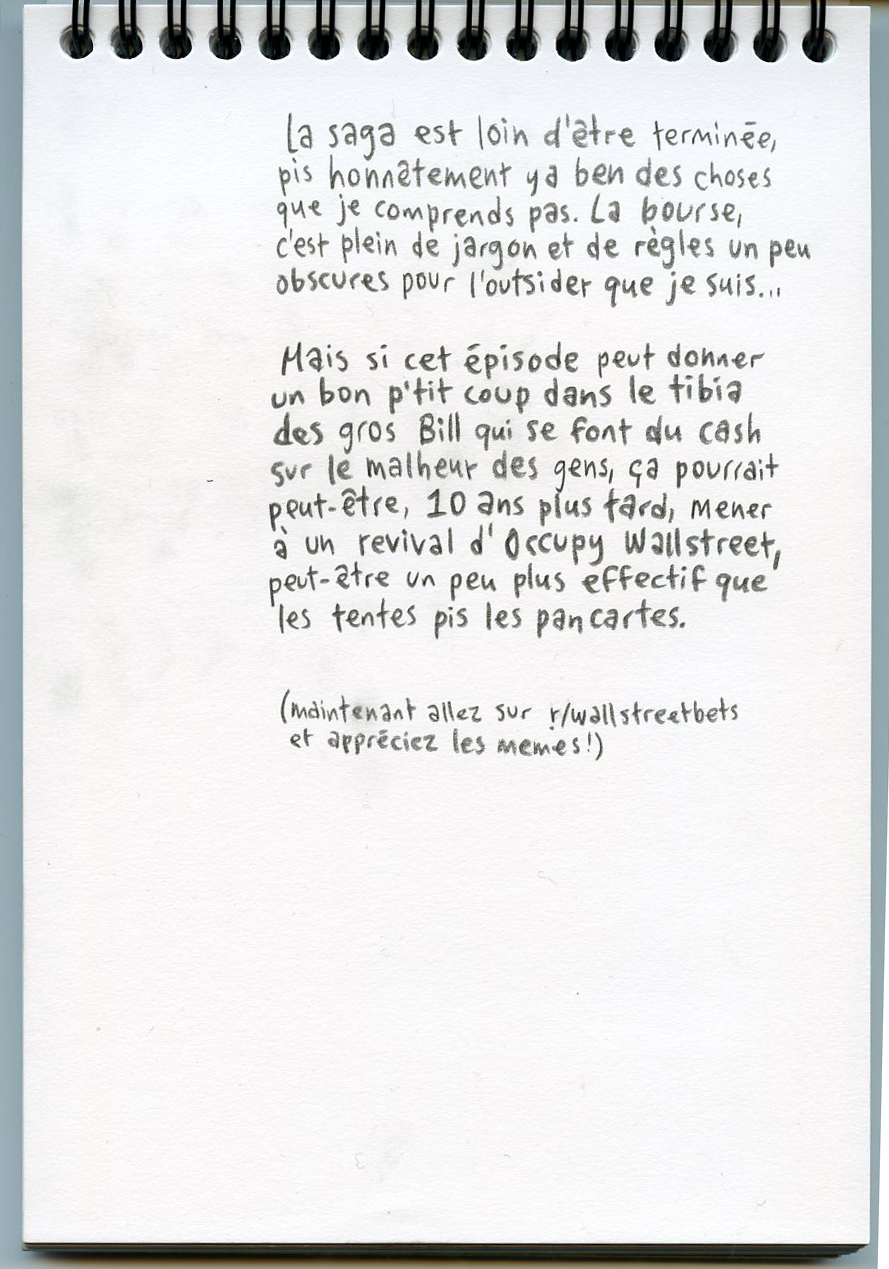 La saga est loin d'être terminée,
pis honnêtement ya ben des choses
que je comprends pas. La bourse,
c'est plein de jargon et de règles un peu
obscures pour l'outsider que je suis...
Mais si cet épisode peut donner
un bon p'tit coup dans le tibia
des gros Bill qui se font du cash
sur le malheur des gens, ça pourrait
peut-être, 10 ans plus tard, mener
à un revival d'Occupy Wallstreet,
peut-être un peu plus effectif que
les tentes pis les pancartes.
(maintenant allez sur r/wallstreetbets
et appréciez les memes!)